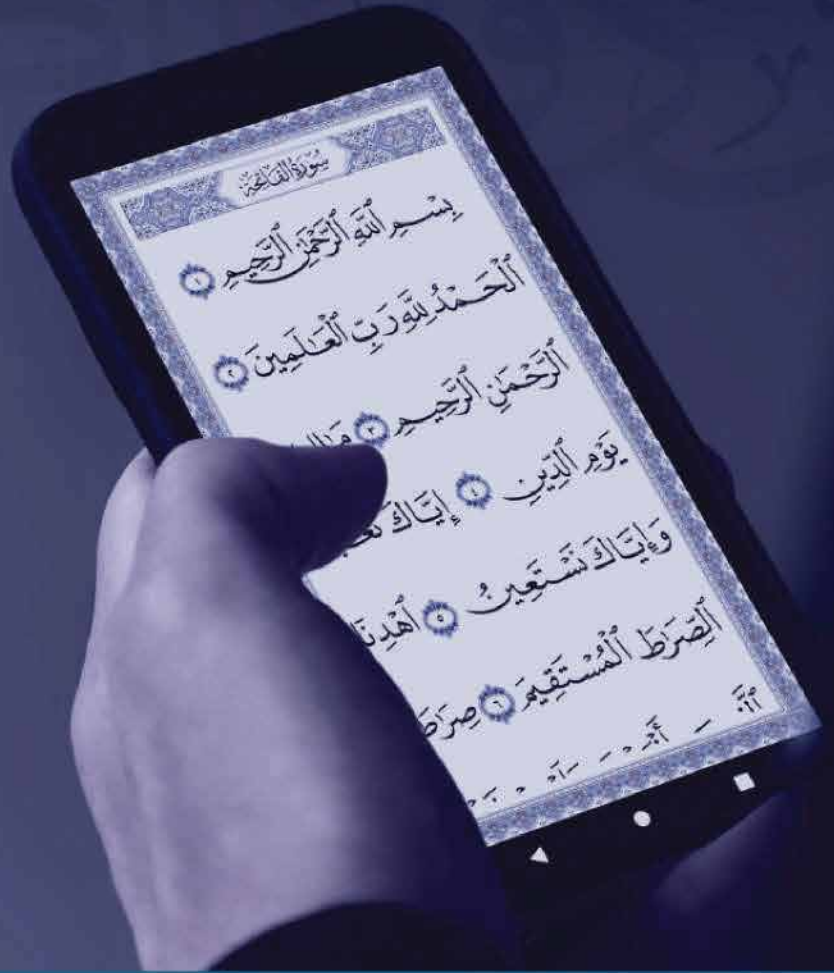 سُورَةُ الْفَاتِحَةِ
بِسْمِ ٱللَّهِ ٱلرَّحْمَٰنِ ٱلرَّحِيمِ ١
ٱلْحَمْدُ لِلَّهِ رَبِّ ٱلْعَٰلَمِينَ ٢
ٱلرَّحْمَٰنِ ٱلرَّحِيمِ ٣
يَوْمِ ٱلدِّينِ ٤ إِيَّاكَ
وَإِيَّاكَ نَسْتَعِينُ ٥ ٱهْدِنَا
ٱلصِّرَٰطَ ٱلْمُسْتَقِيمَ ٦ صِرَٰطَ